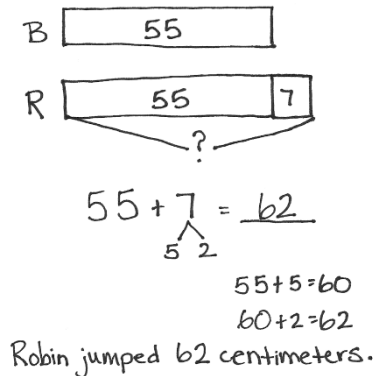 B 55
R 55 7
?
55 + 7 = 62
5 2
55+5=60
60+2=62
Robin jumped 62 centimeters.